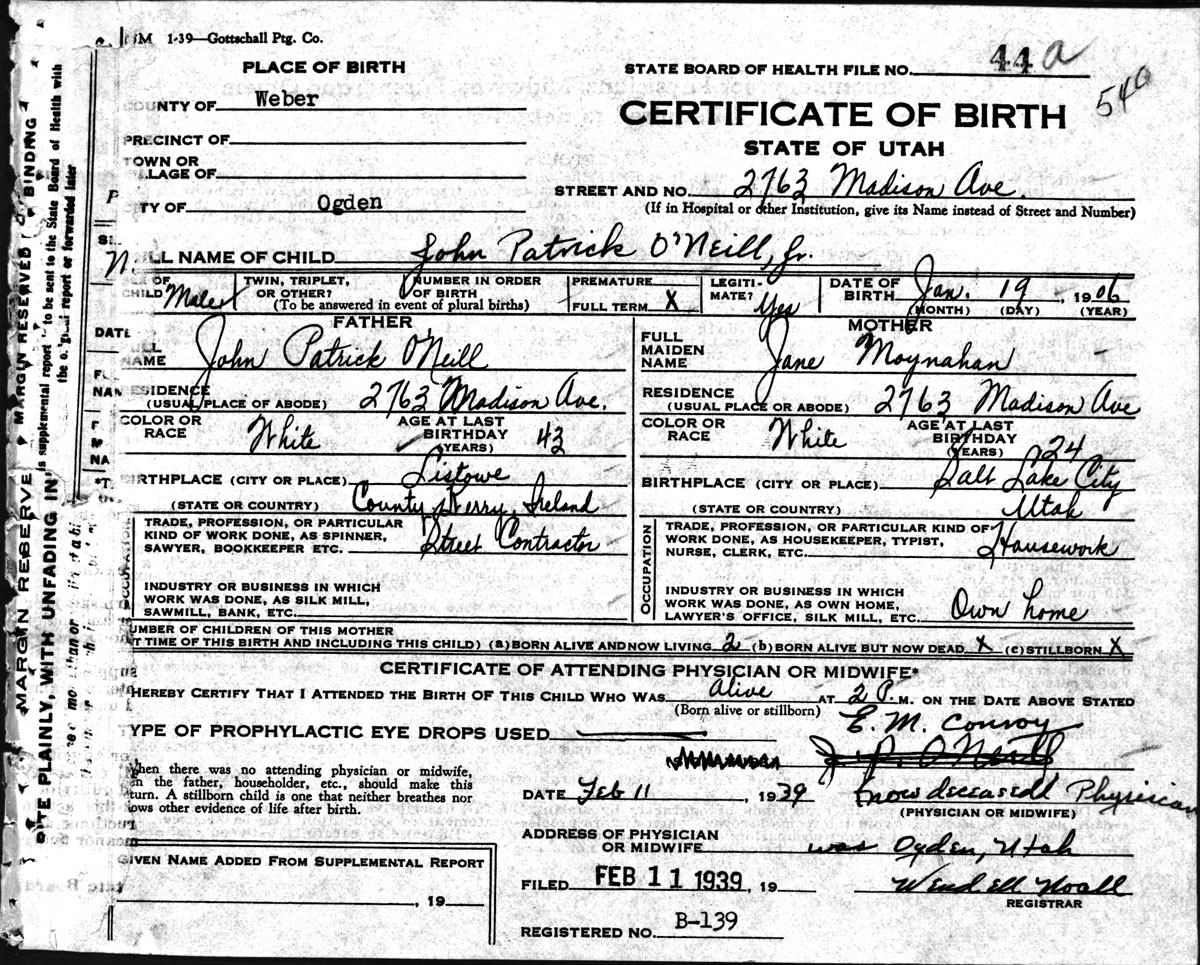 M 1-39—Gottschall Ptg. Co.
PLACE OF BIRTH
STATE BOARD OF HEALTH FILE NO. 44 a
54a
UNTY OF Weber
CERTIFICATE OF BIRTH
PRECINCT OF
STATE OF UTAH
TOWN OR
LAGE OF
STREET AND NO. 2763 Madison Ave.
TY OF Ogden
(If in Hospital or other Institution, give its Name instead of Street and Number)
LL NAME OF CHILD John Patrick O'Neill, Jr.
OF CHILD Male
TWIN, TRIPLET, OR OTHER?
NUMBER IN ORDER OF BIRTH
(To be answered in event of plural births)
PREMATURE
FULL TERM X
LEGITI-MATE? Yes
DATE OF BIRTH Jan. 19, 1906
(MONTH) (DAY) (YEAR)
FATHER
MOTHER
NAME John Patrick O'Neill
FULL MAIDEN NAME Jane Moynahan
RESIDENCE (USUAL PLACE OF ABODE) 2763 Madison Ave.
RESIDENCE (USUAL PLACE OR ABODE) 2763 Madison Ave
COLOR OR RACE White
AGE AT LAST BIRTHDAY (YEARS) 43
COLOR OR RACE White
AGE AT LAST BIRTHDAY (YEARS) 24
BIRTHPLACE (CITY OR PLACE) Listowe
(STATE OR COUNTRY) County Kerry, Ireland
BIRTHPLACE (CITY OR PLACE) Salt Lake City
(STATE OR COUNTRY) Utah
TRADE, PROFESSION, OR PARTICULAR
KIND OF WORK DONE, AS SPINNER,
SAWYER, BOOKKEEPER ETC. Street Contractor
INDUSTRY OR BUSINESS IN WHICH
WORK WAS DONE, AS SILK MILL,
SAWMILL, BANK, ETC.
OCCUPATION
TRADE, PROFESSION, OR PARTICULAR KIND OF
WORK DONE, AS HOUSEKEEPER, TYPIST,
NURSE, CLERK, ETC. Housework
INDUSTRY OR BUSINESS IN WHICH
WORK WAS DONE, AS OWN HOME,
LAWYER'S OFFICE, SILK MILL, ETC. Own home
UMBER OF CHILDREN OF THIS MOTHER
T TIME OF THIS BIRTH AND INCLUDING THIS CHILD) (a) BORN ALIVE AND NOW LIVING 2 (b) BORN ALIVE BUT NOW DEAD X (c) STILLBORN X
CERTIFICATE OF ATTENDING PHYSICIAN OR MIDWIFE*
HEREBY CERTIFY THAT I ATTENDED THE BIRTH OF THIS CHILD WHO WAS alive AT 2 P. M. ON THE DATE ABOVE STATED
(Born alive or stillborn)
E. M. Conroy
TYPE OF PROPHYLACTIC EYE DROPS USED
J. P. O'Neill
When there was no attending physician or midwife,
en the father, householder, etc., should make this
turn. A stillborn child is one that neither breathes nor
ows other evidence of life after birth.
DATE Feb 11, 1939
(now deceased) Physician
(PHYSICIAN OR MIDWIFE)
ADDRESS OF PHYSICIAN
OR MIDWIFE was Ogden, Utah
GIVEN NAME ADDED FROM SUPPLEMENTAL REPORT
, 19
FILED FEB 11 1939, 19
Wendell Noall
REGISTRAR
REGISTERED NO. B-139
MARGIN RESERVED
BINDING
s supplemental report
to be sent to the State Board of Health with
report or forwarded later
MARGIN RESERVE
ITE PLAINLY, WITH UNFADING IN
DATE
NAN
NA